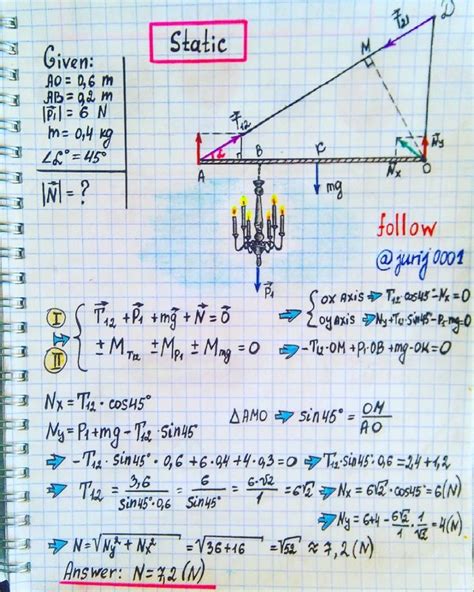 Static
Given:
AO = 0,6 m
AB = 0,2 m
|P⃗₁| = 6 N
m = 0,4 kg
∠α° = 45°
|N⃗| = ?
D
T⃗₂₁
M
T⃗₁₂
α
A
B
K
Nₓ
N⃗y
O
mg⃗
P⃗₁
follow
@jurij0001
I
T⃗₁₂ + P⃗₁ + mg⃗ + N⃗ = 0⃗
OX AXIS ⇒ T₁₂·cos45° - Nₓ = 0
OY AXIS ⇒ Ny + T₁₂·sin45° - P₁ - mg = 0
II
± M_T₁₂ ± M_P₁ ± M_mg = 0 ⇒ -T₁₂·OM + P₁·OB + mg·OK = 0
Nₓ = T₁₂·cos45°
△AMO ⇒ sin45° = OM/AO
Ny = P₁ + mg - T₁₂·sin45°
⇒ -T₁₂·sin45°·0,6 + 6·0,4 + 4·0,3 = 0 ⇒ T₁₂·sin45°·0,6 = 2,4 + 1,2
⇒ T₁₂ = 3,6/sin45°·0,6 = 6/sin45° = 6·√2/1 = 6√2 ⇒ Nₓ = 6√2·cos45° = 6(N)
⇒ Ny = 6+4 - 6√2/1 · 1/√2 = 4(N)
⇒ N = √Ny² + Nₓ² = √36+16 = √52 ≈ 7,2 (N)
Answer: N = 7,2 (N)